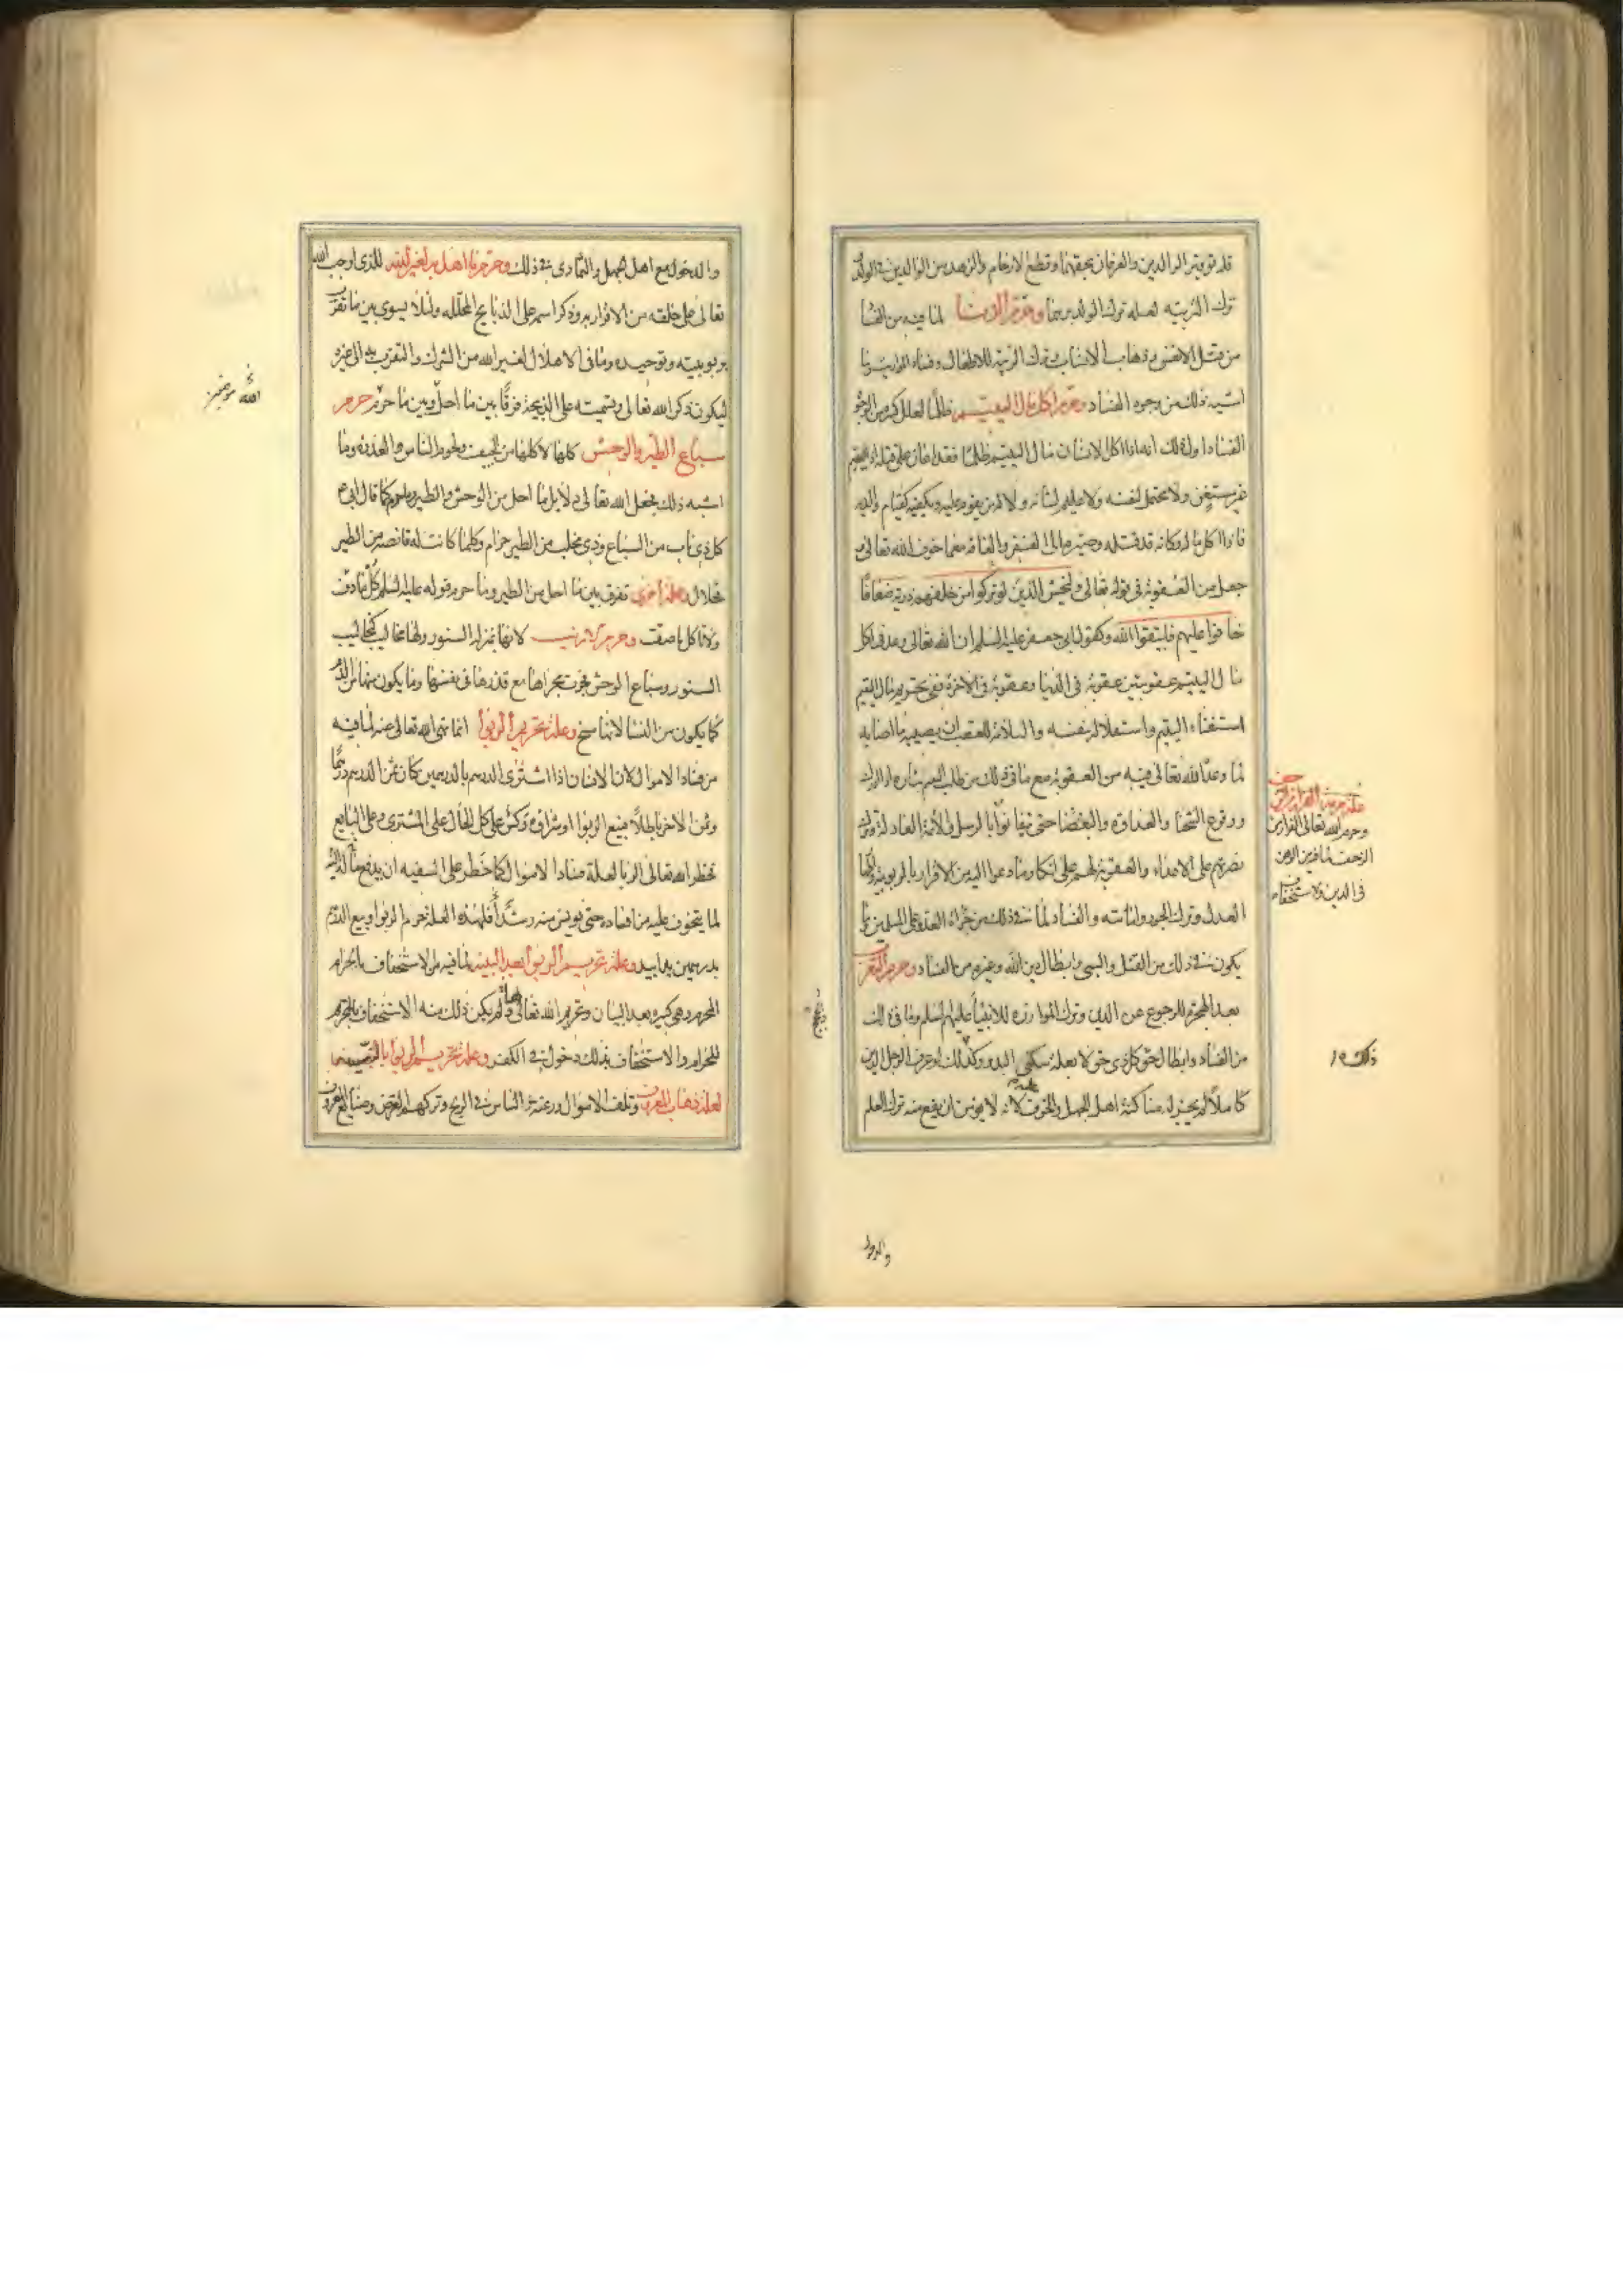 قلة توقير الوالدين والعرفان بحقهما وقطع الارحام والزهد من الوالدين في الولد و
ترك التربيه لعلة ترك الولد برهما وحرم الزنا لما فيه من الفساد
من قتل الانفس وذهاب الانساب وترك التربية للاطفال وفساد المواريث وما
اشبه ذلك من وجوه الفساد وحرم اكل مال اليتيم ظلماً لعلل كثيرة من وجوه
الفساد اول ذلك انه اذا اكل الانسان مال اليتيم ظلماً فقد اعان على قتله اذ اليتيم
غير مستغن ولا محتمل لنفسه ولا عليم لشانه ولا له من يقوم عليه ويكفيه كقيام والديه
فاذا اكل ماله فكانه قد قتله وصيره الى الفقر والفاقه مع ما خوف الله تعالى و
جعل من العقوبة في قوله تعالى وليخش الذين لو تركوا من خلفهم ذرية ضعافا
خافوا عليهم فليتقوا الله وكقول ابي جعفر عليه السلم ان الله تعالى وعد في اكل
مال اليتيم عقوبتين عقوبة في الدنيا وعقوبة في الاخرة ففي تحريم مال اليتيم
استغناء اليتيم واستقلاله بنفسه والسلامة للعقب ان يصيبه ما اصابه
لما وعد الله تعالى فيه من العقوبة مع ما في ذلك من طلب اليتيم بثاره اذا ادرك
ووقوع الشحنا والعداوة والبغضا حتى يتفانوا
علة حرمة الفرار من الزحف
وحرم الله تعالى الفرار من
الزحف لما فيه من الوهن
في الدين والاستخفاف
بالرسل والائمة العادلة وترك
نصرتهم على الاعداء والعقوبة لهم على انكار ما دعوا اليه من الاقرار بالربوبية واظهار
العدل وترك الجور واماتته والفساد لما في ذلك من جراة العدو على المسلمين وما
يكون في ذلك من القتل والسبي وابطال دين الله وغيره من الفساد وحرم التعرب
بعد الهجرة للرجوع عن الدين وترك الموازرة للانبياء عليهم السلم وما في ذلك
من الفساد وابطال حق كل ذي حق لا بعلة سكنى البدو وكذلك لو عرف الرجل الدين
كاملاً لم يجز له مساكنة اهل الجهل والخوف عليه لانه لا يؤمن ان يقع منه ترك العلم
والدخول
والدخول مع اهل الجهل والتمادى في ذلك وحرم ما اهل به لغير الله للذى اوجب الله
تعالى على خلقه من الاقرار به وذكر اسمه على الذبايح المحلله ولئلا يسوى بين ما تقرب
بربوبيته وتوحيده وما في الاهلال لغير الله من الشرك والتقرب به الى غيره
ليكون ذكر الله تعالى وتسميته على الذبيحة فرقاً بين ما احل وبين ما حرم وحرم
سباع الطير والوحش كلها لاكلها من الجيف ولحوم الناس والعذرة وما
اشبه ذلك فجعل الله تعالى دلايل ما احل من الوحش والطير وما حرم كما قال ابي ع
كل ذى ناب من السباع وذى مخلب من الطير حرام وكلما كانت له قانصة من الطير
فحلال وعلة اخرى تفرق بين ما احل من الطير وما حرم قوله عليه السلم كل ما دف
ولا تاكل ما صف وحرم الارنب لانها بمنزلة السنور ولها مخاليب كمخاليب
السنور وسباع الوحش فجرت مجراها مع قذرها في نفسها وما يكون منها من الدم
كما يكون من النسا لانها مسخ وعلة تحريم الربوا انما نهى الله تعالى عنه لما فيه
من فساد الاموال لان الانسان اذا اشترى الدرهم بالدرهمين كان ثمن الدرهم درهماً
وثمن الاخر باطلاً فبيع الربوا وشراؤه وكس على كل الحال على المشترى وعلى البايع
فحظر الله تعالى الربا لعلة فساد الاموال كما حظر على السفيه ان يدفع ماله اليه
لما يتخوف عليه من افساده حتى يونس منه رشداً فلهذه العلة حرم الربوا وبيع الدرهم
بدرهمين يدا بيد وعلة تحريم الربوا بعد البينه لما فيه من الاستخفاف بالحرام
المحرم وهي كبيرة بعد البيان وتحريم الله تعالى لها ولم يكن ذلك منه الا استخفاف بالمحرم
للحرام والاستخفاف بذلك دخول في الكفر وعلة تحريم الربوا بالنسية
لعلة ذهاب المعروف وتلف الاموال ورغبة الناس في الربح وتركهم القرض وصنايع المعروف